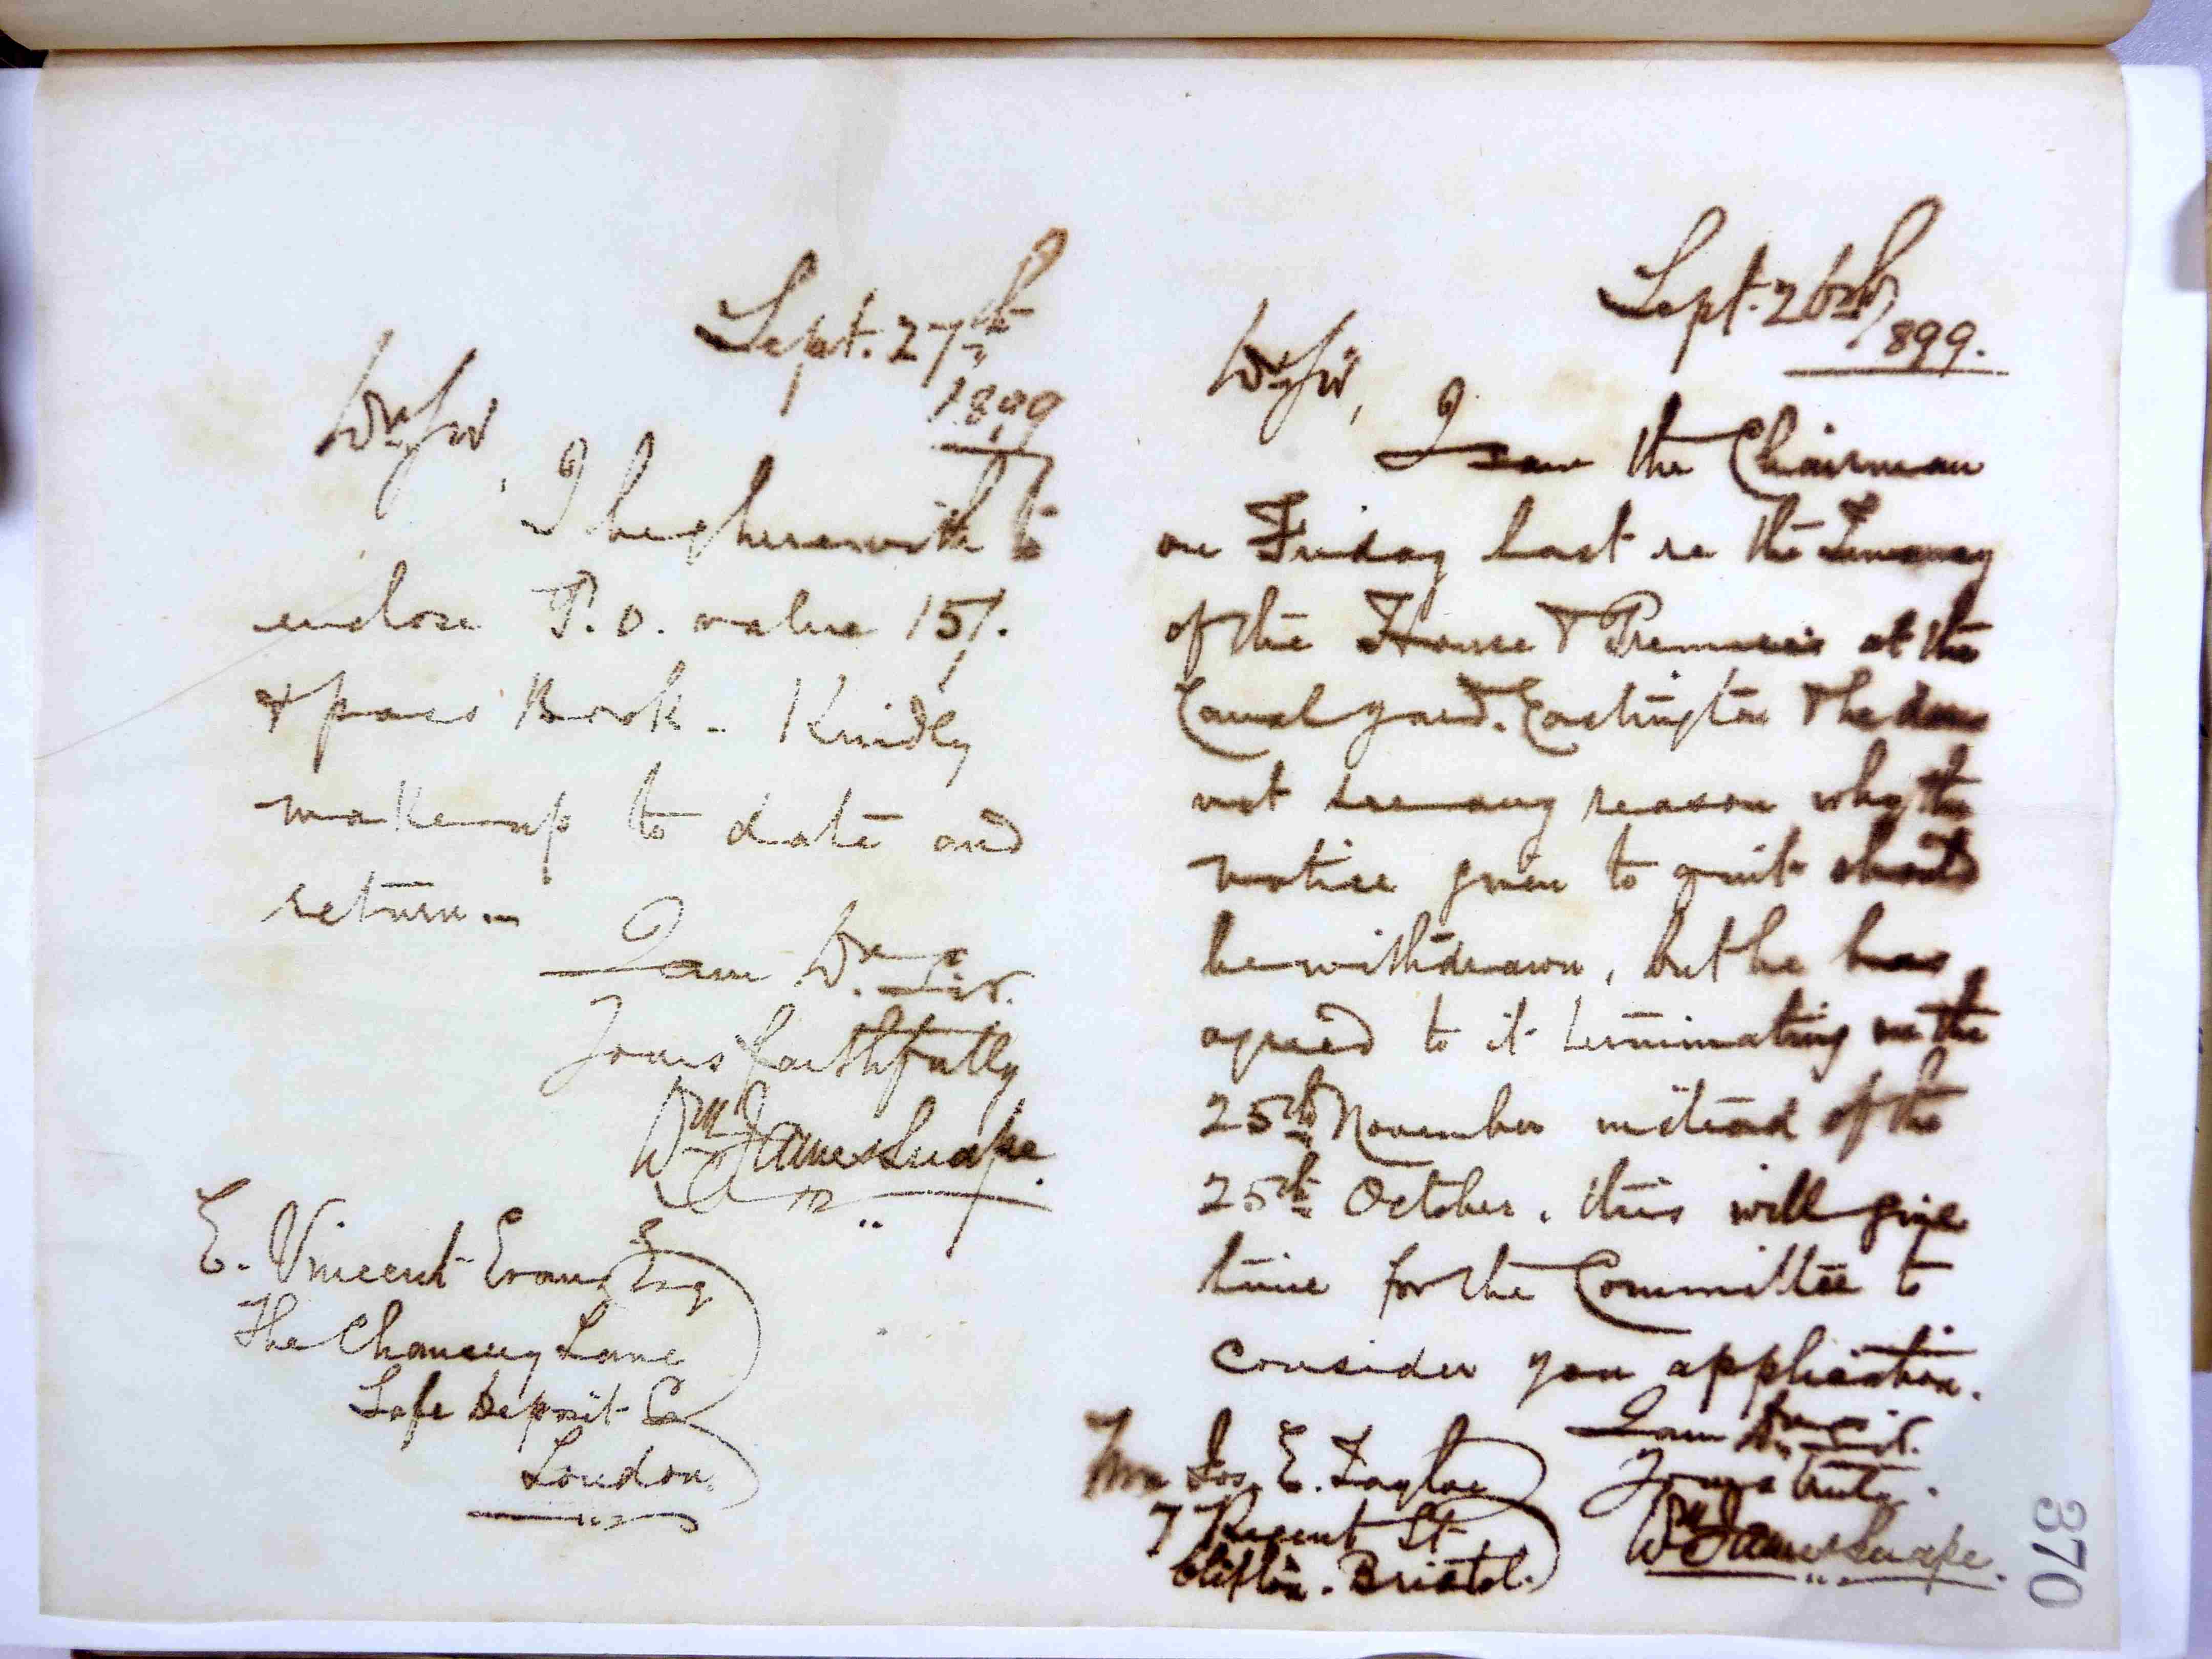 Sept. 27th
1899
Dr Sir,
I beg herewith to
enclose P.O. value 15/.
& pass Book - Kindly
make up to date and
return -
I am Dr Sir.
Yours faithfully
Wm James Snape.
E. Vincent Evans Esq
The Chancery Lane
Safe Deposit Co
London.
Sept. 26th
1899.
Dr Sir,
I saw the Chairman
on Friday last re the Tenancy
of the House & Premises at the
Canal Yard. Eastington & he does
not see any reason why the
notice given to quit should
be withdrawn, but he has
agreed to it terminating on the
25th November instead of the
25th October. this will give
time for the Committee to
consider you application.
I am Dr Sir.
Yours truly.
Wm James Snape.
Jos. E. Taylor
7 Regent St
Clifton. Bristol.
370